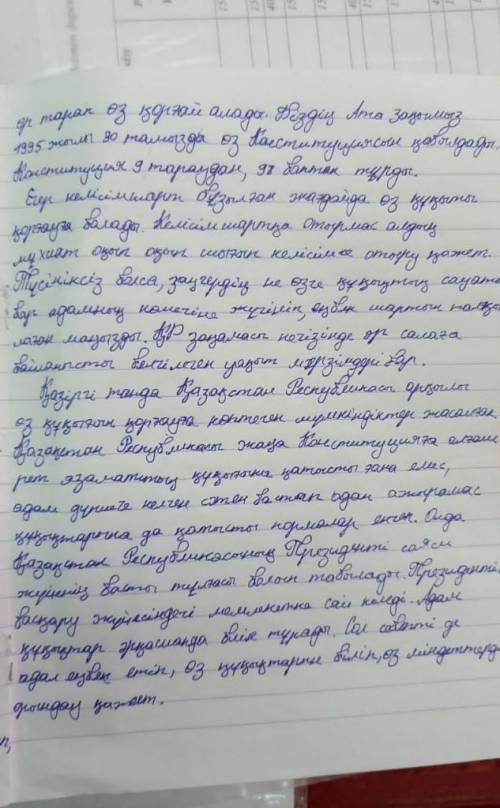 әр тарап өз қорғай алады. Біздің Ата заңымыз
1995 жылы 30 тамызда өз Конституциясын қабылдады.
Конституция 9 тараудан, 98 баптан тұрды.
Егер келісімшарт бұзылған жағдайда өз құқығын
қорғауға болады. Келісімшартқа отырмас алдын
мұқият оқып оқып шығып келісімге отыру қажет.
Түсініксіз болса, заңгердің не өзге құқықтық сауаты
бар адамның көмегіне жүгініп, еңбек шартын талқы
лаған маңызды. ҚР заңамасы негізінде әр салаға
байланысты белгіленген уақыт мерзімдері бар.
Қазіргі таңда Қазақстан Республикасы арқылы
өз құқығын қорғауға көптеген мүмкіндіктер жасалған.
Қазақстан Республикасы жаңа Конституцияға алғаш
рет азаматтың құқығына қатысты ғана емес,
адам дүниеге келген сәтен бастап одан ажырамас
құқықтарына да қатысты нормалар енген. Онда
Қазақстан Республикасының Президенті саяси
жүйенің басты тұлғасы болып табылады. Президентті
басқару жүйесіндегі мемлекетке сай келеді. Адам
құқықтар әрқашанда биік тұрады. Сол себепті де
адал еңбек етіп, өз құқықтарын біліп, өз міндеттерд
орындау қажет.